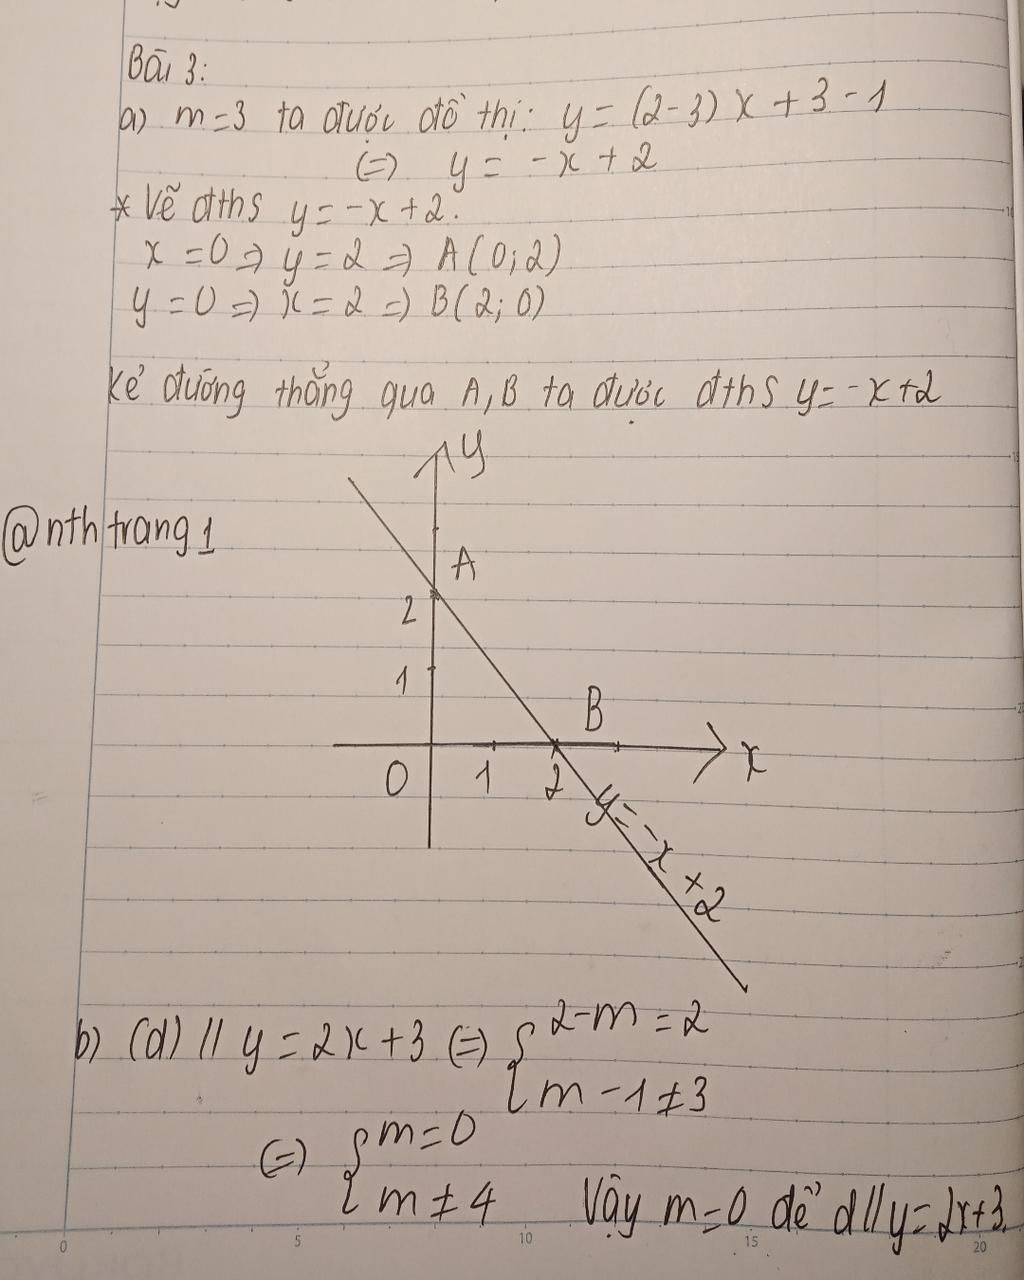 Bài 3:
a) m=3 ta được đồ thị: y = (2-3) x + 3 - 1
(=) y = -x + 2
* Vẽ đths y = -x + 2.
x = 0 => y = 2 => A(0; 2)
y = 0 => x = 2 => B(2; 0)
Kẻ đường thẳng qua A, B ta được đths y = -x + 2
y
@nthtrang1
A
2
1
B
0 1 2 x
y = -x + 2
b) (d) // y = 2x + 3 (=) { 2-m = 2
m - 1 ≠ 3
(=) { m = 0
m ≠ 4 Vậy m = 0 để d // y = 2x+3.
0 5 10 15 20